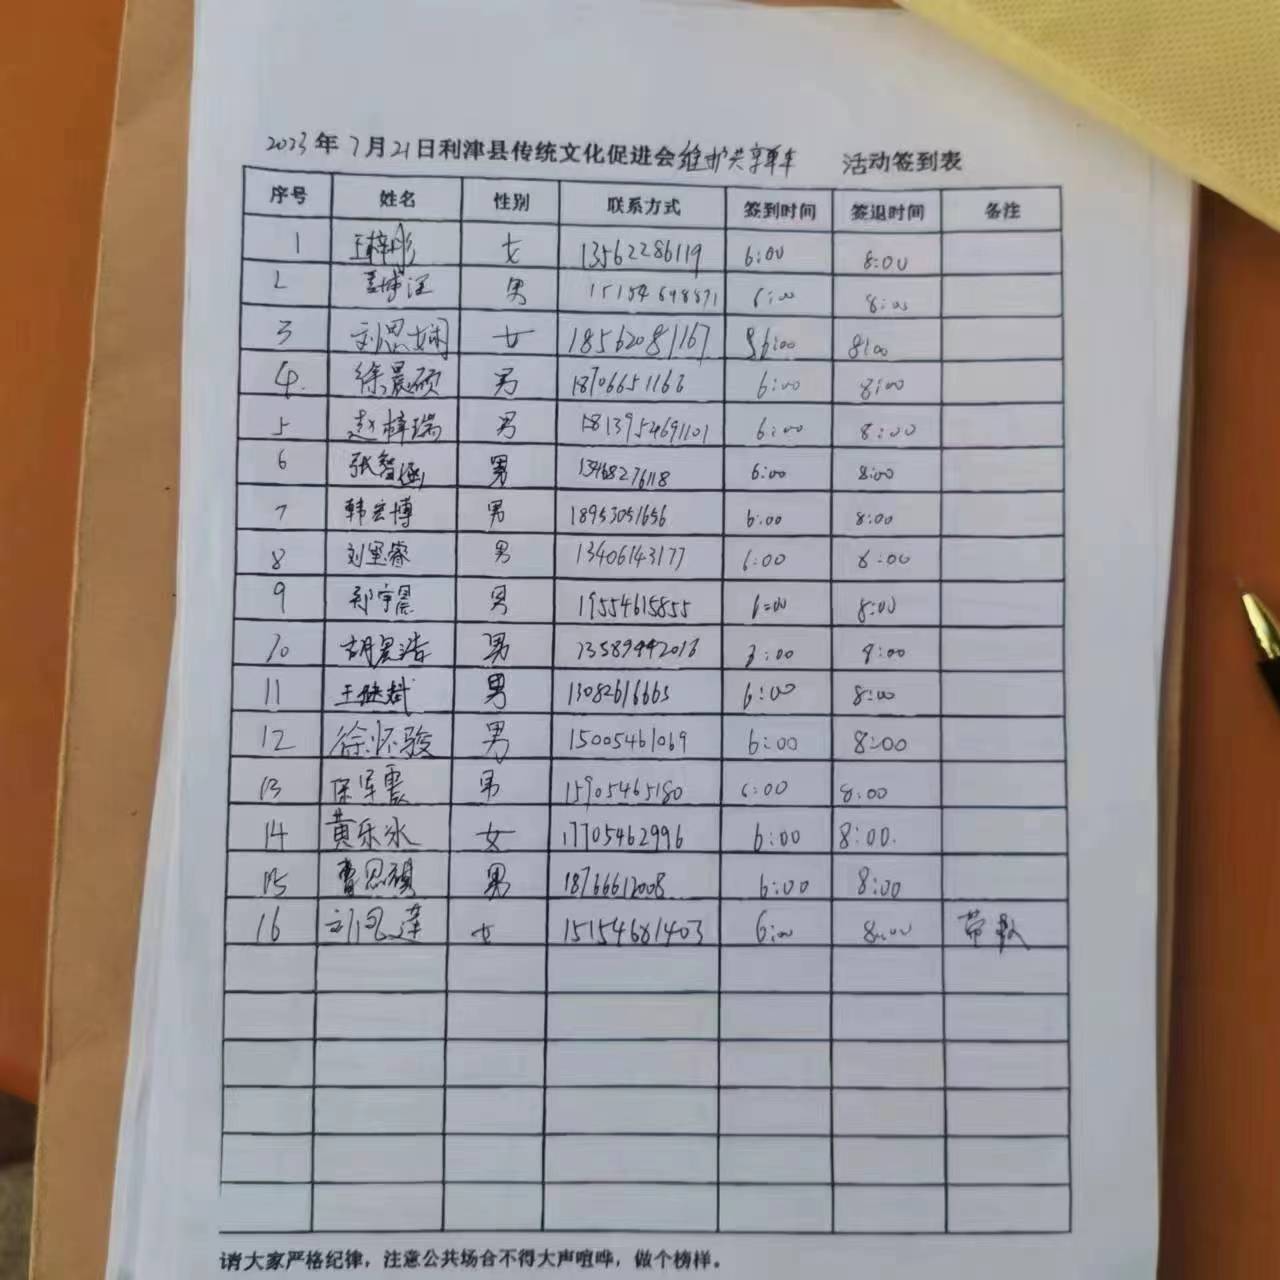 2023年7月21日利津县传统文化促进会维护共享单车 活动签到表
序号 姓名 性别 联系方式 签到时间 签退时间 备注
1 王梓彤 女 13562286119 6:00 8:00
2 男 15154698871 6:00 8:00
3 刘思娴 女 18562081167 6:00 8:00
4. 徐晨硕 男 18706651166 6:00 8:00
5 赵梓瑞 男 1813954691101 6:00 8:00
6 张智涵 男 13468276118 6:00 8:00
7 韩宏博 男 18953051656 6:00 8:00
8 刘坚睿 男 13406143177 6:00 8:00
9 郑宇晨 男 19554615855 6:00 8:00
10 胡晨浩 男 13589442016 8:00
11 王继斌 男 13082616665 6:00 8:00
12 徐怀骏 男 15005461069 6:00 8:00
13 男 15905465180 6:00 8:00
14 黄乐冰 女 17705462996 6:00 8:00.
15 曹思琪 男 18766612008 6:00 8:00
16 刘凤莲 女 15154681403 6:00 8:00 带队
请大家严格纪律，注意公共场合不得大声喧哗，做个榜样。